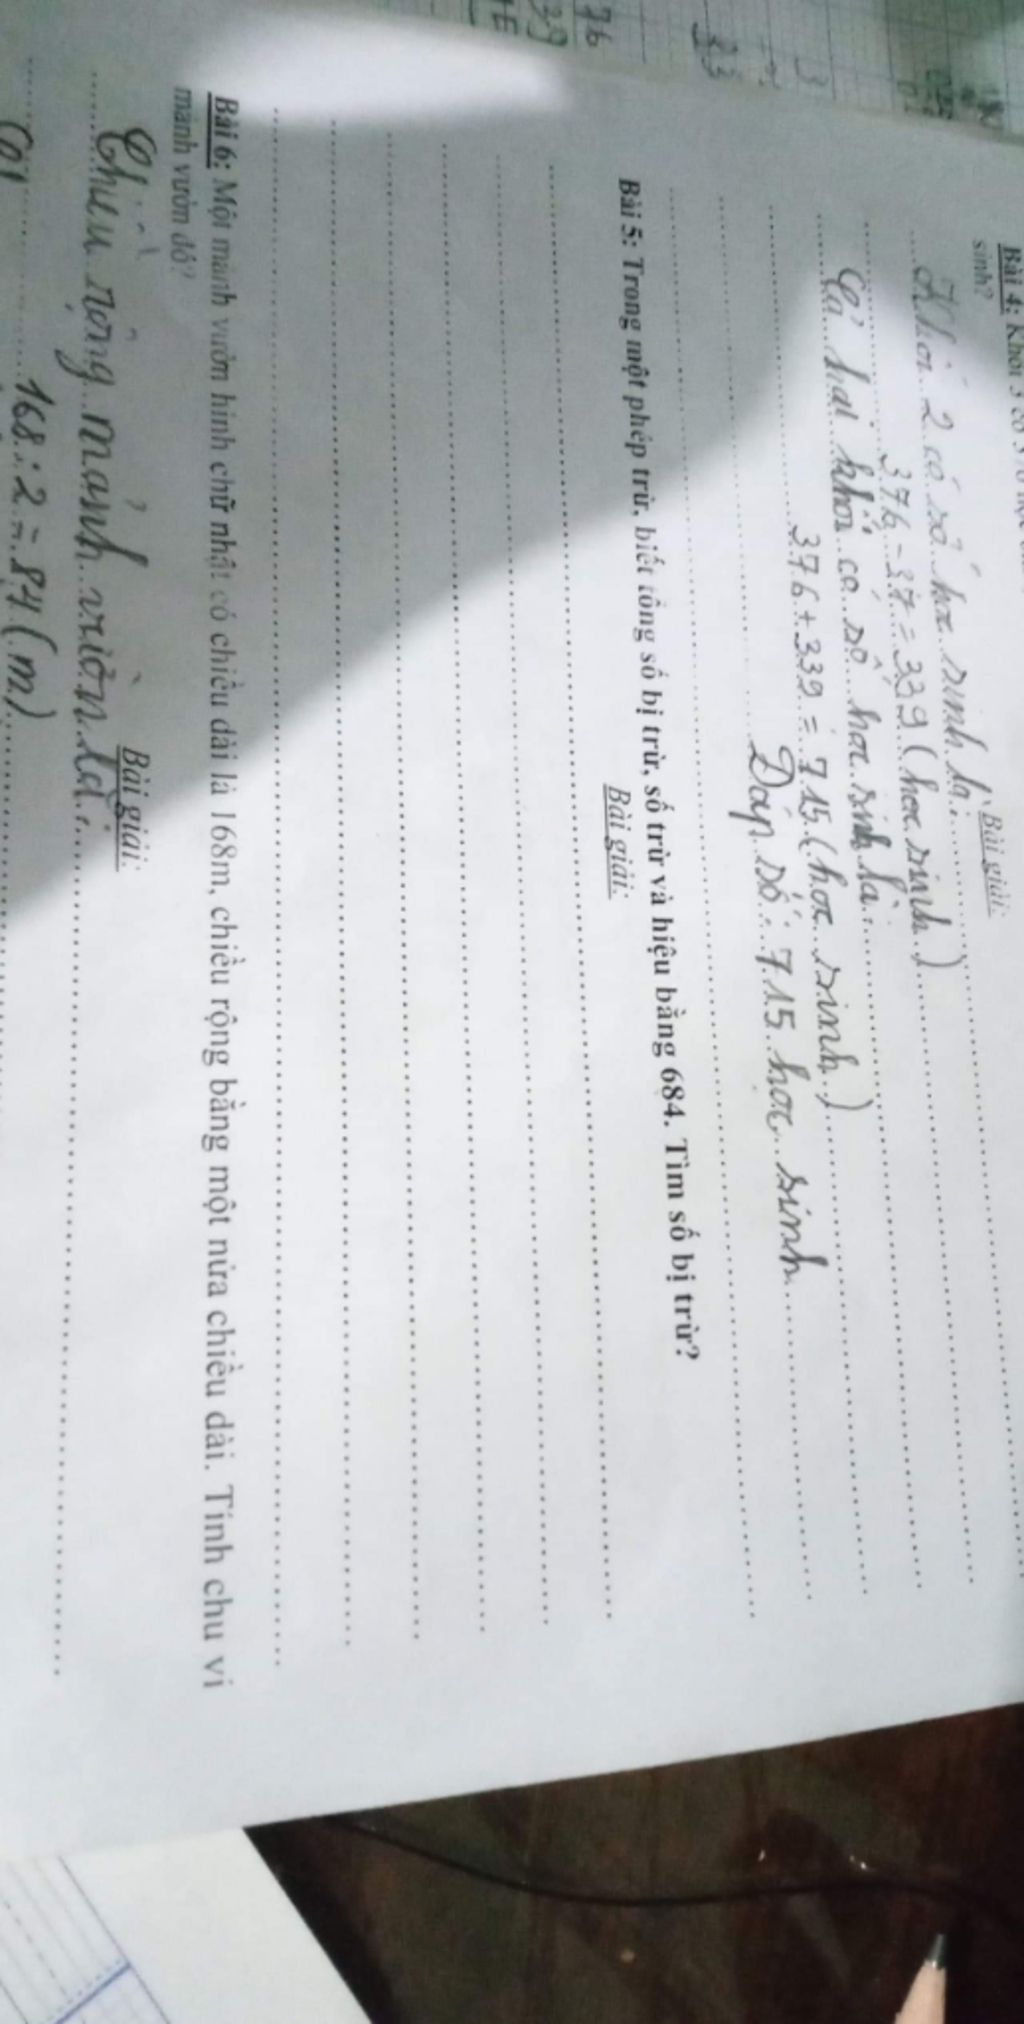 Bài 4: Khối 3 có
sinh?
Bài giải:
Khối 2 có số học sinh là:
376 - 37 = 339 (học sinh)
Cả hai khối có số học sinh là:
376 + 339 = 715 (học sinh)
Đáp số: 715 học sinh
Bài 5: Trong một phép trừ, biết tổng số bị trừ, số trừ và hiệu bằng 684. Tìm số bị trừ?
Bài giải:
Bài 6: Một mảnh vườn hình chữ nhật có chiều dài là 168m, chiều rộng bằng một nửa chiều dài. Tính chu vi
mảnh vườn đó?
Bài giải:
Chiều rộng mảnh vườn là:
168 : 2 = 84 (m)